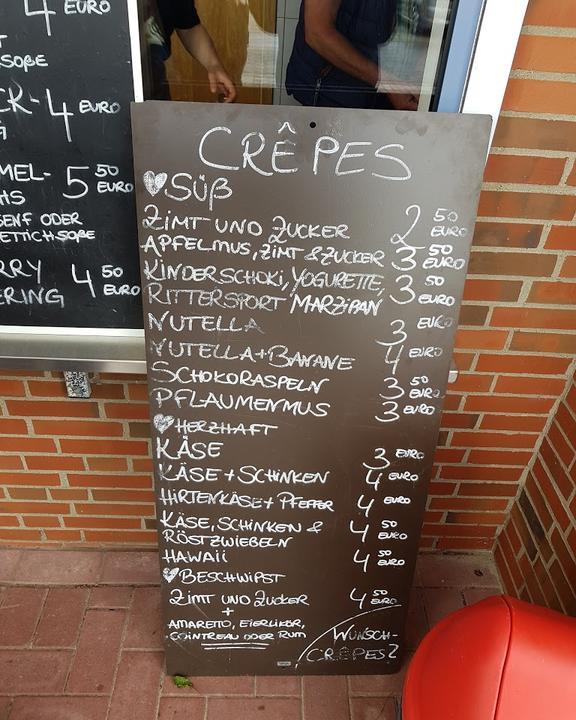 4 EURO
SOßE
CK- 4 EURO
MEL- 5 50 EURO
HS
SENF ODER
ETTICHSOßE
RRY 4 50 EURO
ERING
CRÊPES
SÜß
ZIMT UND ZUCKER 2 50 EURO
APFELMUS, ZIMT & ZUCKER 3 50 EURO
KINDERSCHOKI, YOGURETTE,
RITTERSPORT MARZIPAN 3 50 EURO
NUTELLA 3 EURO
NUTELLA + BANANE 4 EURO
SCHOKORASPELN 3 50 EURO
PFLAUMENMUS 3 EURO
HERZHAFT
KÄSE 3 EURO
KÄSE + SCHINKEN 4 EURO
HIRTENKÄSE + PFEFFER 4 EURO
KÄSE, SCHINKEN &
RÖSTZWIEBELN 4 50 EURO
HAWAII 4 50 EURO
BESCHWIPST
ZIMT UND ZUCKER 4 50 EURO
+
AMARETTO, EIERLIKÖR,
COINTREAU ODER RUM
WUNSCH-
CRÊPES?